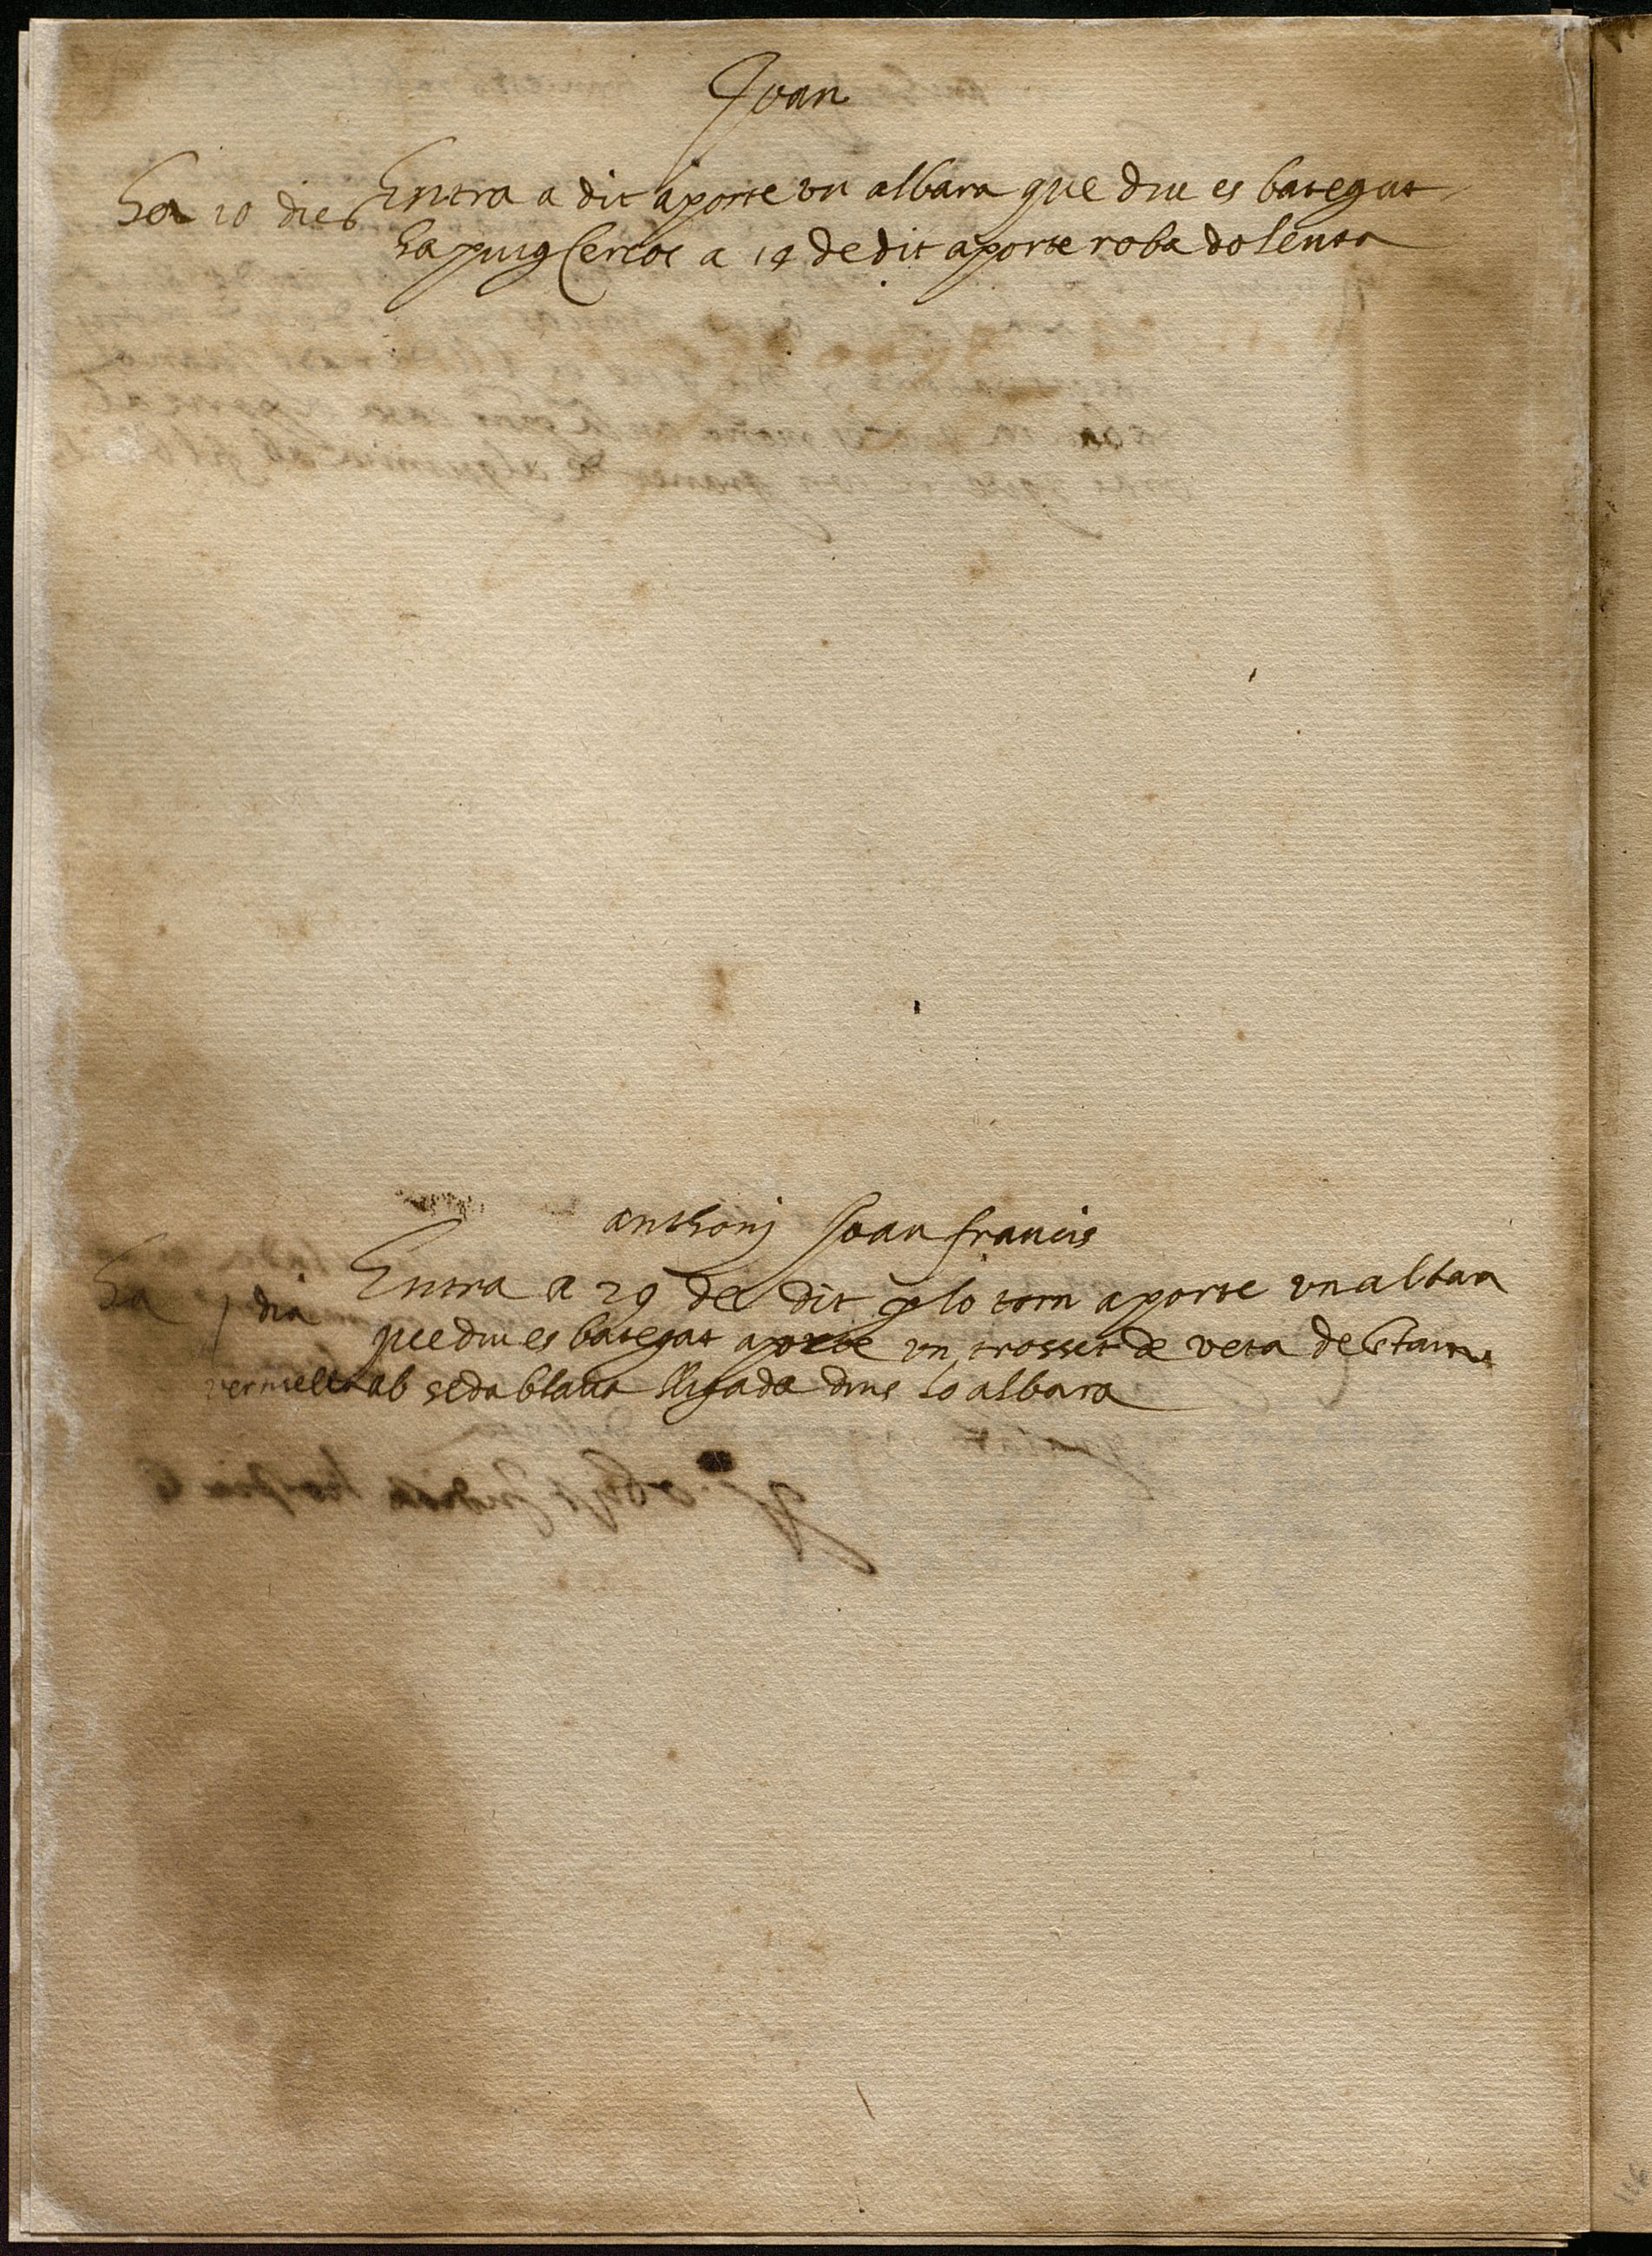 Joan
ha 10 dies Entra a dit aporte vn albara que diu es bategat
ha puigcerdos a 14 de dit aporte roba dolenta
anthoni Joan francis
ha 1 dia Entra a 29 de dit plo torn aporte vn albara
que diu es bategat aporte vn trosset de veta de stam
vermella ab seda blaua lligada dins lo albara